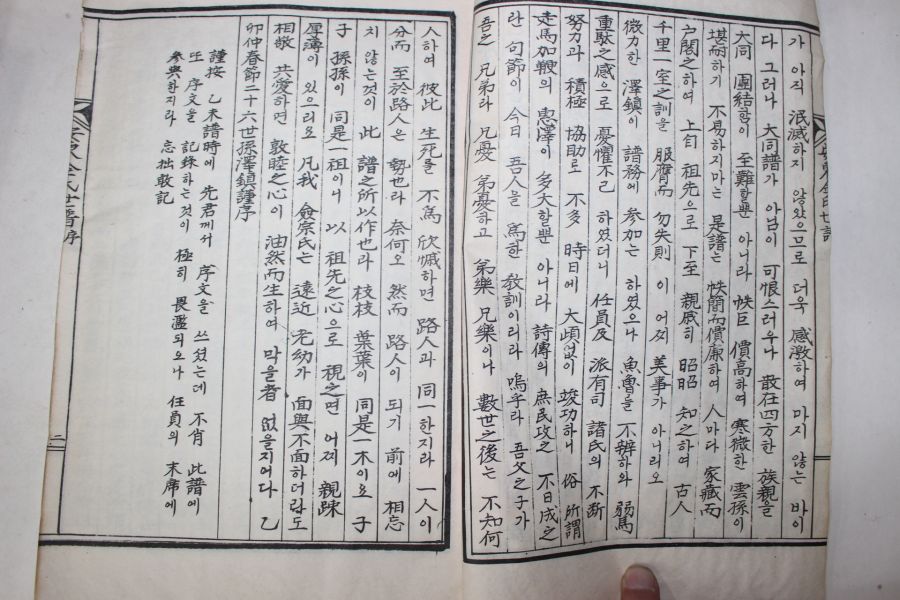 가 아직 泯滅하지 않았으므로 더욱 感激하여 마지 않는 바이
다 그러나 大同譜가 아님이 可恨스러우나 散在四方한 族親을
大同 團結함이 至難할뿐 아니라 帙巨 價高하여 寒微한 雲孫이
堪耐하기 不易하지마는 是譜는 帙簡而價廉하여 人마다 家藏而
戶閱之하여 上自 祖先으로 下至 親戚히 昭昭 知之하여 古人
千里一室之訓을 服膺而 勿失則 이 어찌 美事가 아니리오
微力한 澤鎭이 譜務에 參加는 하였으나 魚魯를 不辨하와 弱馬
重馱之感으로 憂懼不已 하였더니 任員及 派有司 諸氏의 不斷
努力과 積極 協助로 不多 時日에 大頉없이 竣功하니 俗 所謂
走馬加鞭의 惠澤이 多大할뿐 아니라 詩傳의 庶民攻之 不日成之
란 句節이 今日 吾人을 爲한 敎訓이리라 嗚乎라 吾父之子가
吾之 兄弟라 兄憂 弟憂하고 弟樂 兄樂이나 數世之後는 不知何
人하여 彼此 生死를 不爲 欣慽하면 路人과 同一한지라 一人이
分而 至於路人은 勢也라 奈何오 然而 路人이 되기 前에 相忘
지 않는것이 此 譜之所以作也라 枝枝 葉葉이 同是一木이요 子
子 孫孫이 同是一祖이니 以 祖先之心으로 視之면 어찌 親疎
厚薄이 있으리요 凡我 僉宗氏는 遠近 老幼가 面與不面하더람도
相敬 共愛하면 敦睦之心이 油然而生하여 막을者 없을지어다 乙
卯仲春節二十六世孫澤鎭謹序
謹按 乙未譜時에 先君께서 序文을 쓰셨는데 不肖 此譜에
또 序文을 記錄하는것이 極히 畏濫되오나 任員의 末席에
參與한지라 忘拙敢記
氏世譜序
二